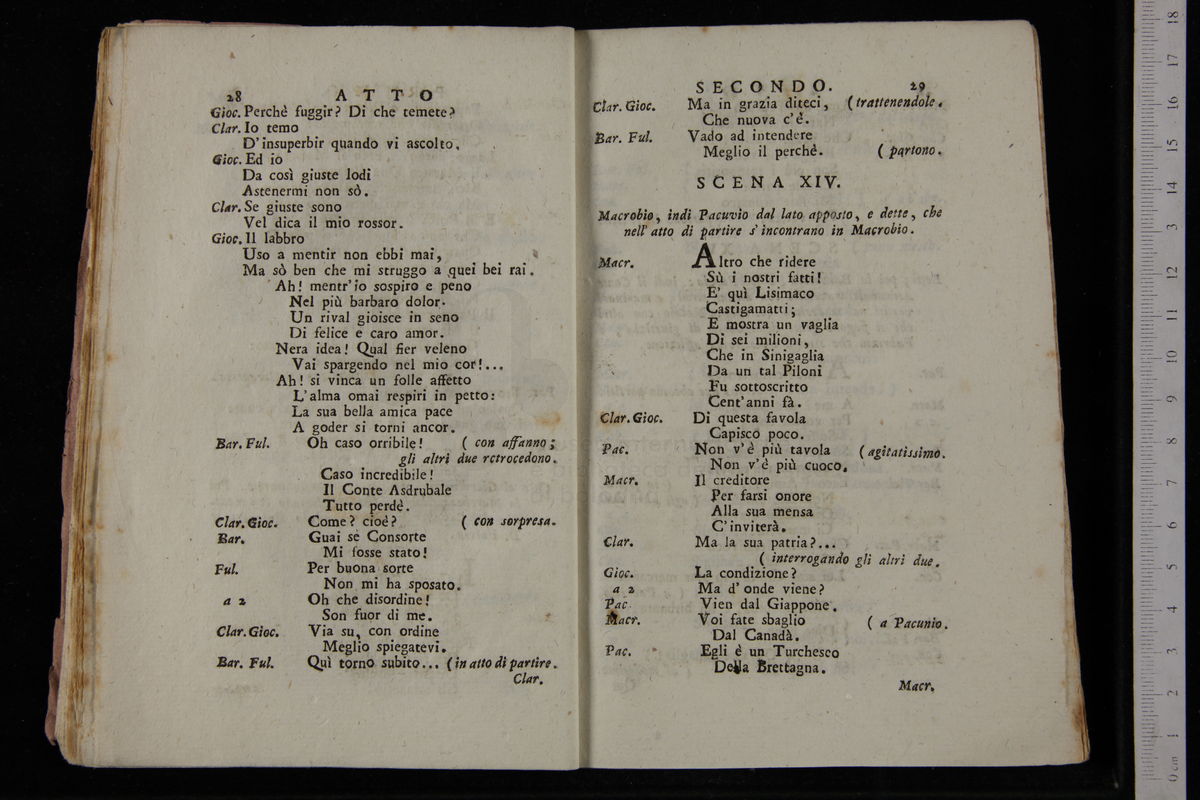 28 ATTO
Gioc. Perchè fuggir? Di che temete?
Clar. Io temo
D'insuperbir quando vi ascolto.
Gioc. Ed io
Da così giuste lodi
Astenermi non sò.
Clar. Se giuste sono
Vel dica il mio rossor.
Gioc. Il labbro
Uso a mentir non ebbi mai,
Ma sò ben che mi struggo a quei bei rai.
Ah! mentr'io sospiro e peno
Nel più barbaro dolor.
Un rival gioisce in seno
Di felice e caro amor.
Nera idea! Qual fier veleno
Vai spargendo nel mio cor!...
Ah! si vinca un folle affetto
L'alma omai respiri in petto:
La sua bella amica pace
A goder si torni ancor.
Bar. Ful. Oh caso orribile! ( con affanno;
gli altri due retrocedono.
Caso incredibile!
Il Conte Asdrubale
Tutto perdè.
Clar. Gioc. Come? cioè? ( con sorpresa.
Bar. Guai se Consorte
Mi fosse stato!
Ful. Per buona sorte
Non mi ha sposato.
a 2 Oh che disordine!
Son fuor di me.
Clar. Gioc. Via su, con ordine
Meglio spiegatevi.
Bar. Ful. Quì torno subito... (in atto di partire.
Clar.
SECONDO. 29
Clar. Gioc. Ma in grazia diteci, (trattenendole.
Che nuova c'è.
Bar. Ful. Vado ad intendere
Meglio il perchè. ( partono.
SCENA XIV.
Macrobio, indi Pacuvio dal lato apposto, e dette, che
nell'atto di partire s'incontrano in Macrobio.
Macr. Altro che ridere
Sù i nostri fatti!
E' quì Lisimaco
Castigamatti;
E mostra un vaglia
Di sei milioni,
Che in Sinigaglia
Da un tal Piloni
Fu sottoscritto
Cent'anni fà.
Clar. Gioc. Di questa favola
Capisco poco.
Pac. Non v'è più tavola (agitatissimo.
Non v'è più cuoco.
Macr. Il creditore
Per farsi onore
Alla sua mensa
C'inviterà.
Clar. Ma la sua patria?...
( interrogando gli altri due.
Gioc. La condizione?
a 2 Ma d'onde viene?
Pac. Vien dal Giappone.
Macr. Voi fate sbaglio ( a Pacunio.
Dal Canadà.
Pac. Egli è un Turchesco
Della Brettagna.
Macr.
0 cm 1 2 3 4 5 6 7 8 9 10 11 12 13 14 15 16 17 18